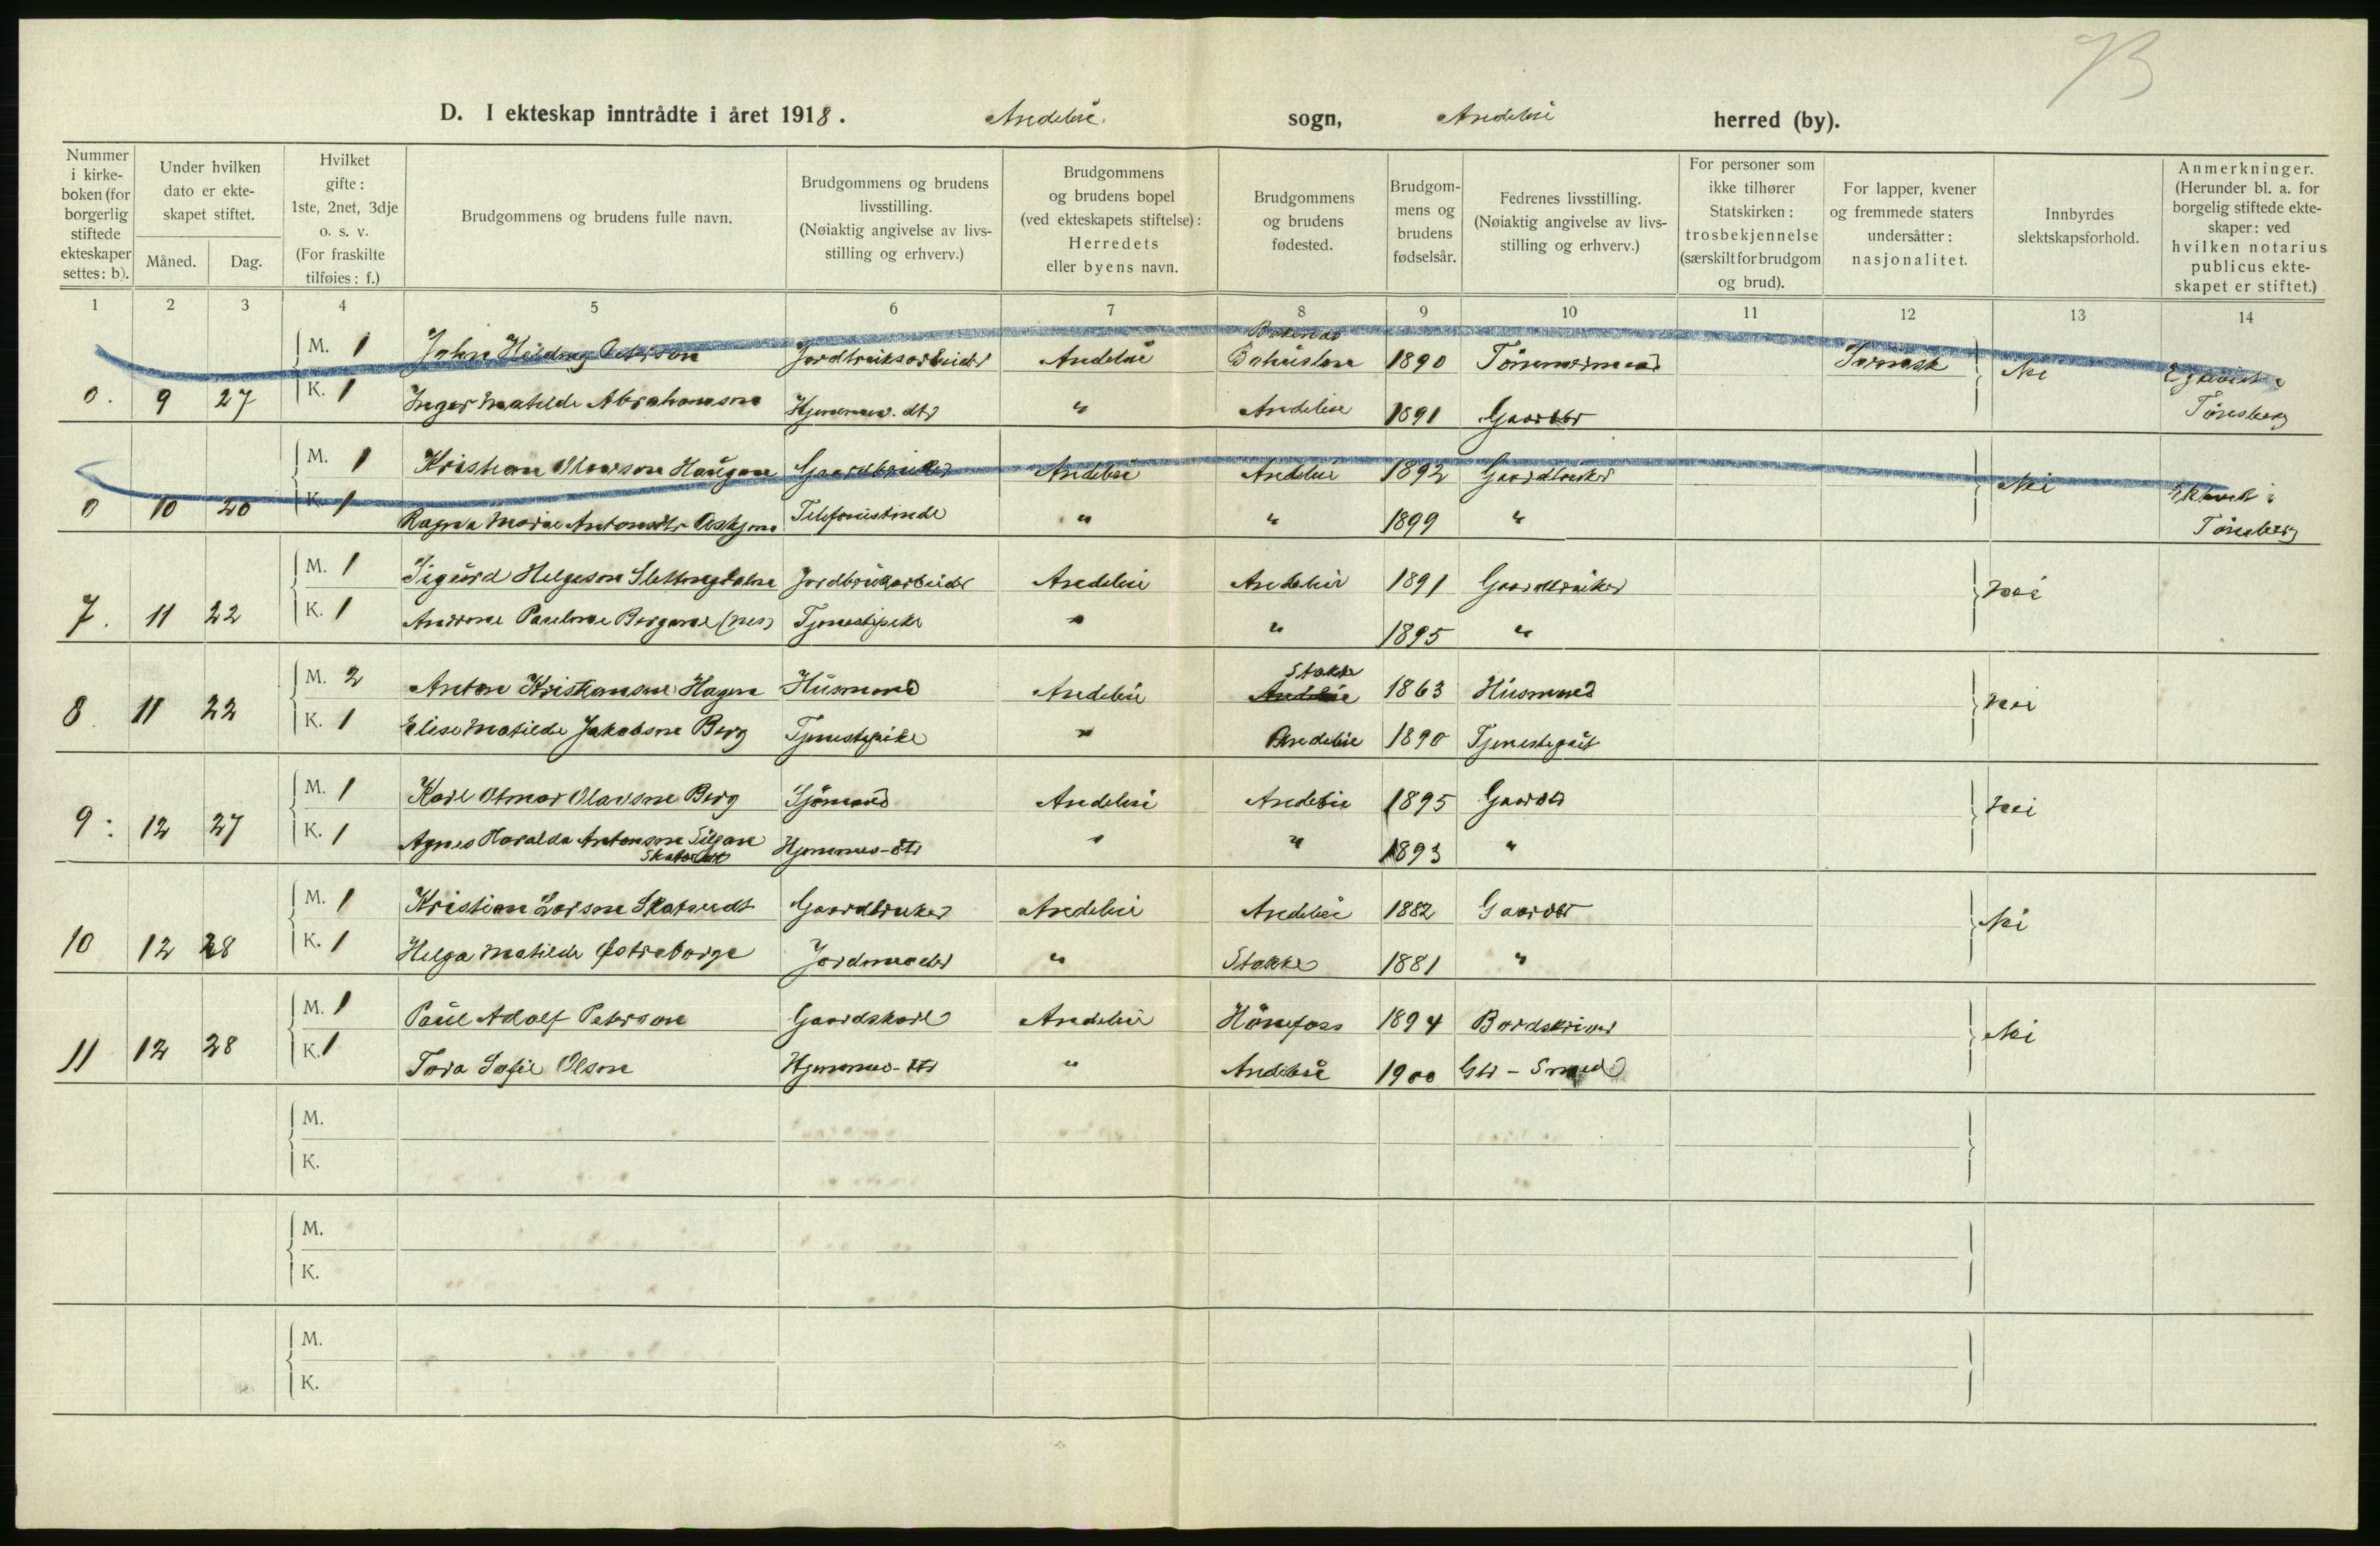 D. I ekteskap inntrådte i året 1918. Andebu sogn, Andebu herred (by).
Nummer i kirke-boken (for borgerlig stiftede ekteskaper settes: b).
Under hvilken dato er ekte-skapet stiftet.
Måned. Dag.
Hvilket gifte: 1ste, 2net, 3dje o. s. v. (For fraskilte tilføies: f.)
Brudgommens og brudens fulle navn.
Brudgommens og brudens livsstilling. (Nøiaktig angivelse av livs-stilling og erhverv.)
Brudgommens og brudens bopel (ved ekteskapets stiftelse): Herredets eller byens navn.
Brudgommens og brudens fødested.
Brudgom-mens og brudens fødselsår.
Fedrenes livsstilling. (Nøiaktig angivelse av livs-stilling og erhverv.)
For personer som ikke tilhører Statskirken: trosbekjennelse (særskilt for brudgom og brud).
For lapper, kvener og fremmede staters undersåtter: nasjonalitet.
Innbyrdes slektskapsforhold.
Anmerkninger. (Herunder bl. a. for borgelig stiftede ekte-skaper: ved hvilken notarius publicus ekte-skapet er stiftet.)
1 2 3 4 5 6 7 8 9 10 11 12 13 14
M. 1 John Hilding Peterson Jordbruksarbeider Andebu Bohuslen 1890 Tömmermand Nei
0. 9 27 K. 1 Inger Matilde Abrahamsen Hjemmev. dtr " Andebu 1891 Gaardbr Tönsberg
M. 1 Kristian Olavson Haugan Gaardbruker Andebu Andebu 1892 Gaardbruker Nei
0 10 20 K. 1 Ragna Marie Antonsdtr Askjem Telefonistinde " " 1899 " Tönsberg
M. 1 Sigurd Helgeson Slettingdalen Jordbrukarbeider Andebu Andebu 1891 Gaardbruker Nei
7. 11 22 K. 1 Pauline Bergane Tjenestepike " " 1895 "
M. 2 Anton Kristiansen Hagen Husmand Andebu Stokke Andebu 1863 Husmand Nei
8. 11 22 K. 1 Elise Matilde Jakobsen Berg Tjenestepike " Andebu 1890 Tjenestegut
M. 1 Karl Otmar Olavsen Berg Sjömand Andebu Andebu 1895 Gaardbr Nei
9. 12 27 K. 1 Agnes Haralda Antonsen Hjemmev-dtr " " 1893 "
M. 1 Kristian Larsen Skatvedt Gaardbruker Andebu Andebu 1882 Gaardbr Nei
10 12 28 K. 1 Helga Matilde Østreborge Jordmoder " Stokke 1881 "
M. 1 Paul Adolf Peterson Gaardskarl Andebu Hönefoss 1894 Bordskriver Nei
11 12 28 K. 1 Tora Sofie Olsen Hjemmev-dtr " Andebu 1900 Gbr - Smed
M.
K.
M.
K.
M.
K.